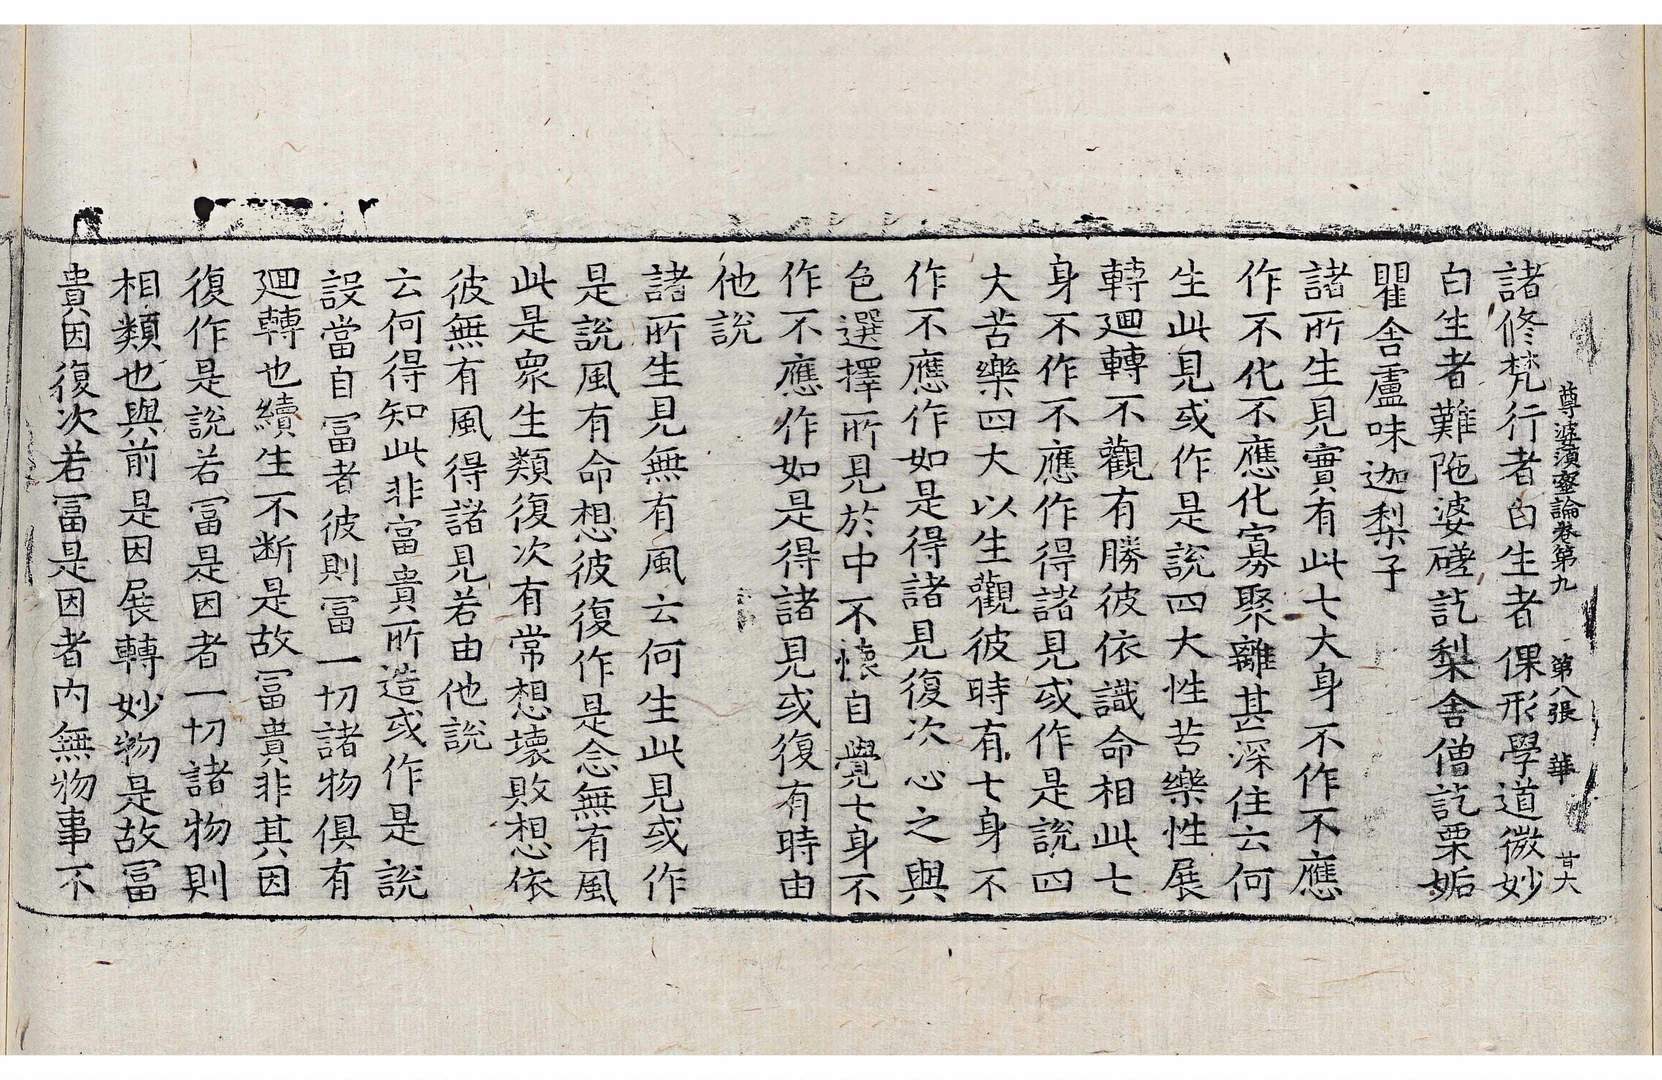 尊婆湏蜜論卷第九　第八張　華　廿六
諸修梵行者白生者倮形學道微妙
白生者難陁婆磋訖梨舍僧訖栗姤
瞿舍盧味迦梨子
諸所生見實有此七大身不作不應
作不化不應化寡聚離甚深住云何
生此見或作是說四大性苦樂性展
轉迴轉不觀有勝彼依識命相此七
身不作不應作得諸見或作是說四
大苦樂四大以生觀彼時有七身不
作不應作如是得諸見復次心之與
色選擇所見於中不懷自覺七身不
作不應作如是得諸見或復有時由
他說
諸所生見無有風云何生此見或作
是說風有命想彼復作是念無有風
此是衆生類復次有常想壞敗想依
彼無有風得諸見若由他說
云何得知此非富貴所造或作是說
設當自冨者彼則冨一切諸物俱有
迴轉也續生不断是故冨貴非其因
復作是說若冨是因者一切諸物則
相類也與前是因展轉妙物是故冨
貴因復次若冨是因者內無物事不